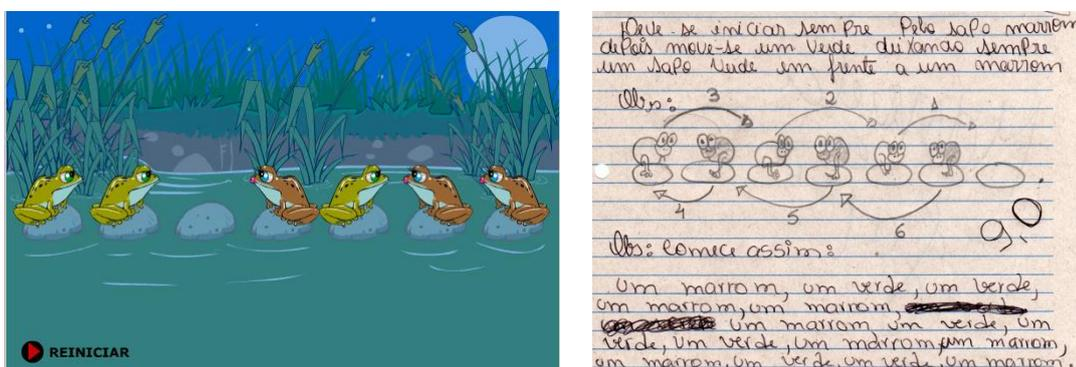 REINICIAR
Deve-se iniciar sempre Pelo sapo marrom
depois move-se um verde deixando sempre
um sapo verde em frente a um marrom
Obs:
3 2 1
4 5 6
9,0
Obs: comece assim:
um marrom, um verde, um verde,
um marrom, um marrom,
um marrom, um verde, um
verde, um verde, um marrom, um marrom,
um marrom, um verde, um verde, um marrom.